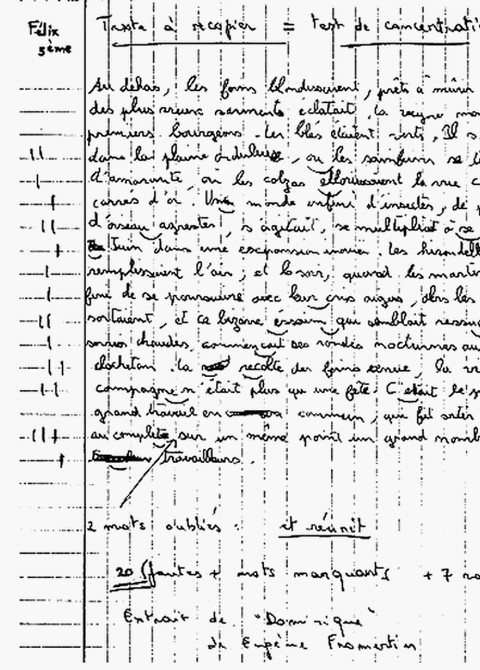 Félix
5ème
Texte à recopier = test de concentrati
Au dehors, les foins blondissaient, prêts à mûrir
des plus vieux sarments éclatait, la vigne mon
premiers bourgeons. Les blés étaient verts, Il s
dans la plaine onduleuse, où les sainfoins se t
d'amarante, où les colzas éblouissaient la vue c
carrés d'or. Un monde infini d'insectes, de p
d'oiseau agrestes, s'agitait, se multipliait à se
Juin dans une expansion inouïe. Les hirondelle
remplissaient l'air ; et le soir, quand les marti
fini de se poursuivre avec leur cris aigus, alors les
sortaient, et ce bizarre essaim, qui semblait ressus
soirées chaudes, commençait ses rondes nocturnes au
clochetons. La récolte des foins venue, la vi
campagne n'était plus qu'une fête. C'était le p
grand travail en commun, que fit sortir
au complète sur un même point un grand nomb
travailleurs.
2 mots oubliés : et réunit
20 fautes + mots manquants + 7 ra
Extrait de "Dominique"
de Eugène Fromentin